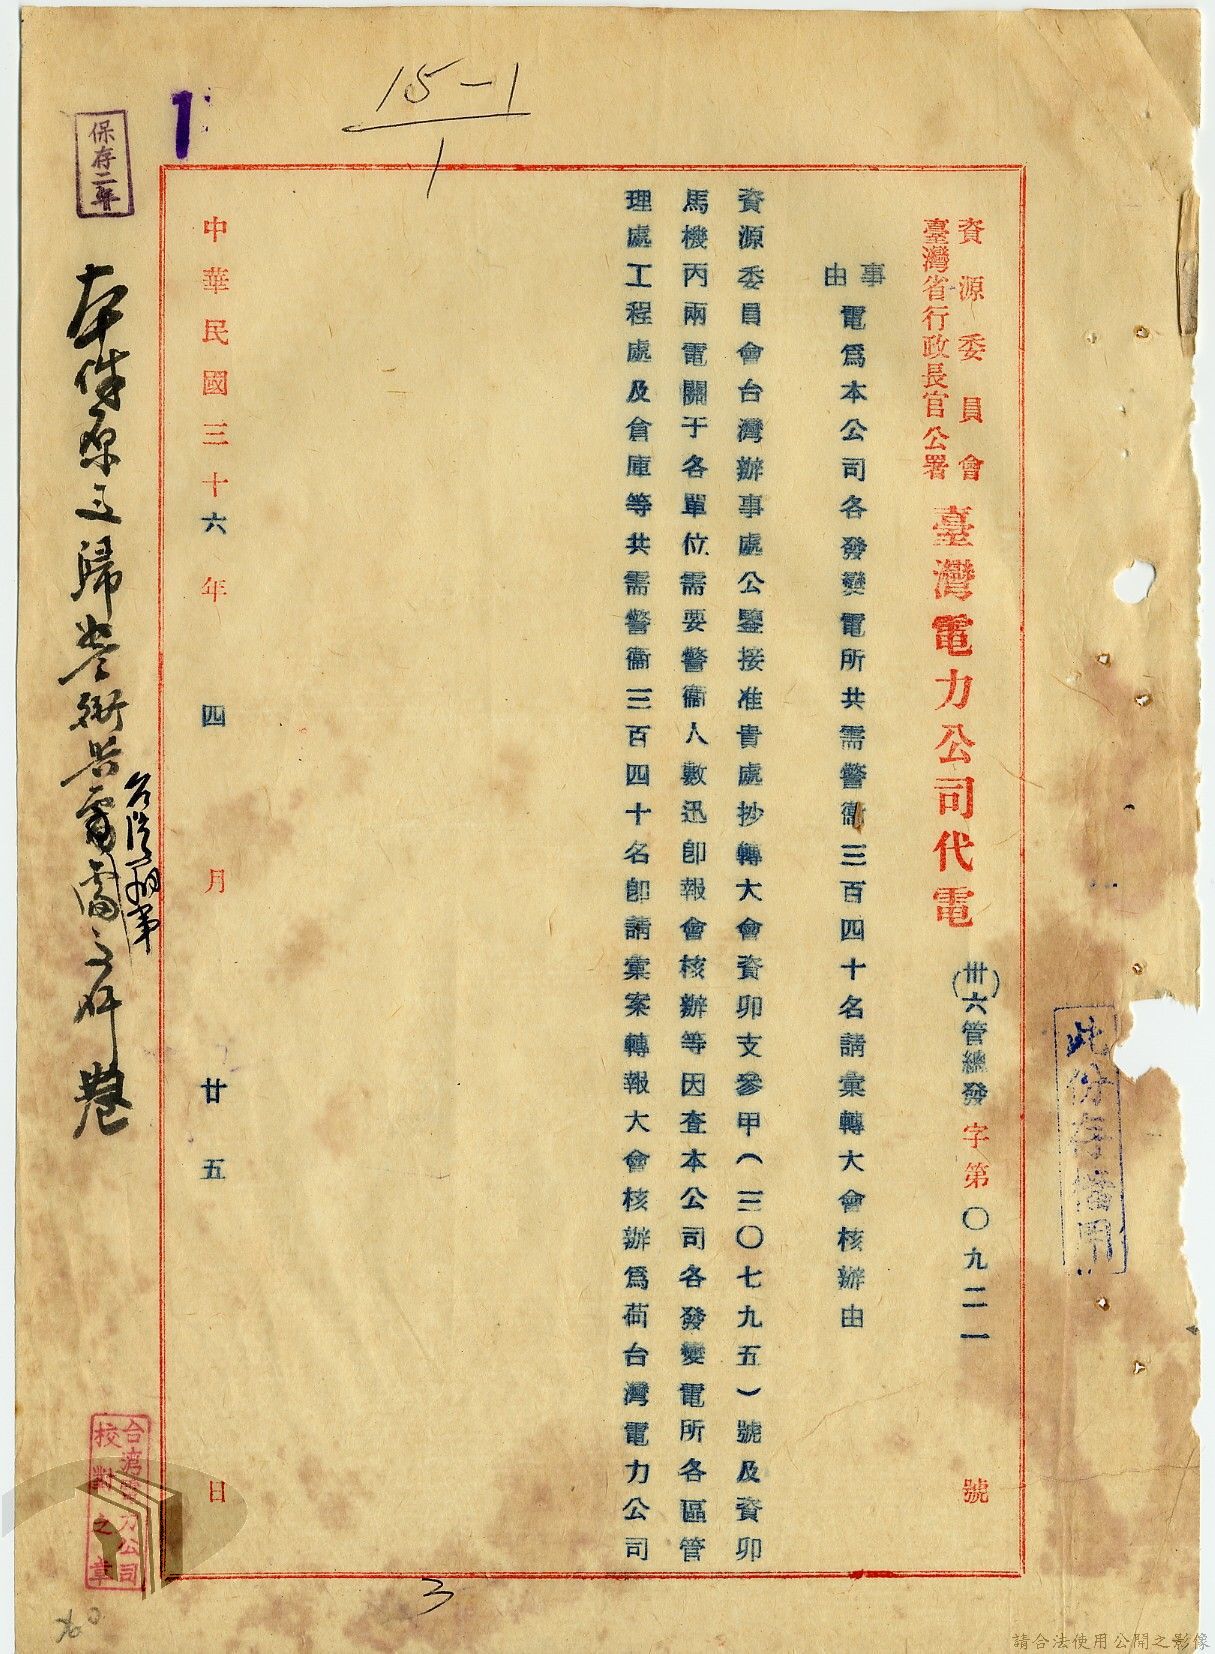 15-1
1
1
保存二年
此份存備用
資源委員會
臺灣省行政長官公署
臺灣電力公司代電
(卅六)管總發字第〇九二一號
事由
電爲本公司各發變電所共需警衞三百四十名請彙轉大會核辦由
資源委員會台灣辦事處公鑒接准貴處抄轉大會資卯支參甲(三〇七九五)號及資卯
馬機丙兩電關于各單位需要警衞人數迅卽報會核辦等因查本公司各發變電所各區管
理處工程處及倉庫等共需警衞三百四十名卽請彙案轉報大會核辦爲荷台灣電力公司
中華民國三十六年四月廿五日
本件原文歸
卷
台灣電力公司
校對之章
3
請合法使用公開之影像